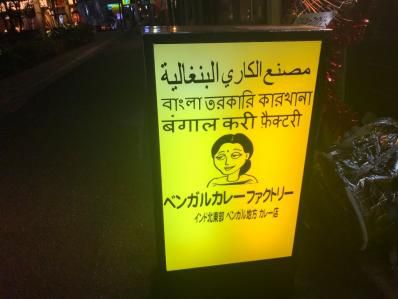 مصنع الكاري البنغالية
বাংলা তরকারি কারখানা
बंगाल करी फ़ैक्टरी
ベンガルカレーファクトリー
インド北東部 ベンガル地方 カレー店